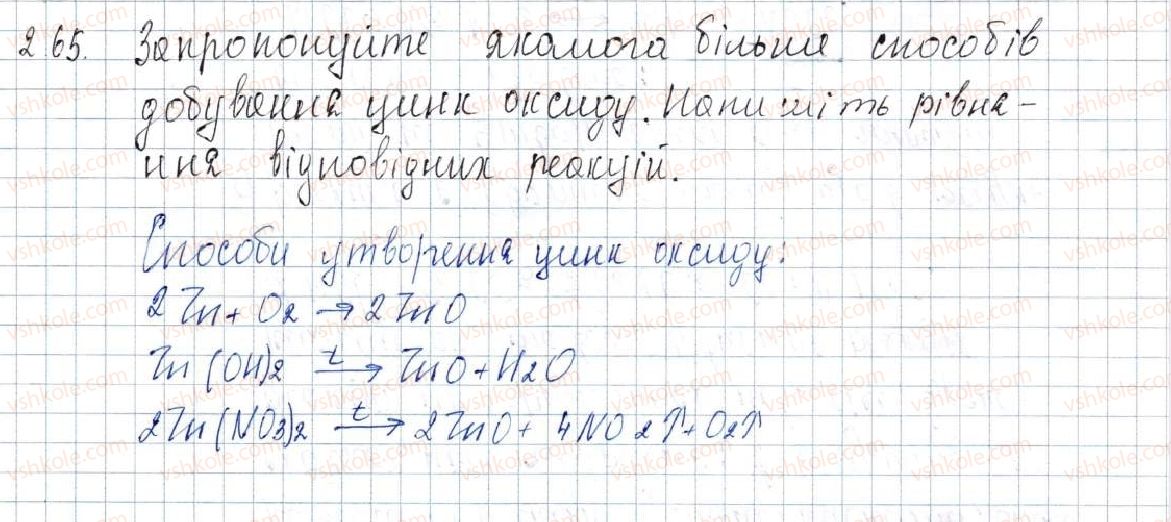 265. Запропонуйте якомога більше способів
добування цинк оксиду. Напишіть рівня-
ння відповідних реакцій.
Способи утворення цинк оксиду:
2Zn + O2 → 2ZnO
Zn(OH)2 t→ ZnO + H2O
2Zn(NO3)2 t→ 2ZnO + 4NO2↑ + O2↑
vshkole.com